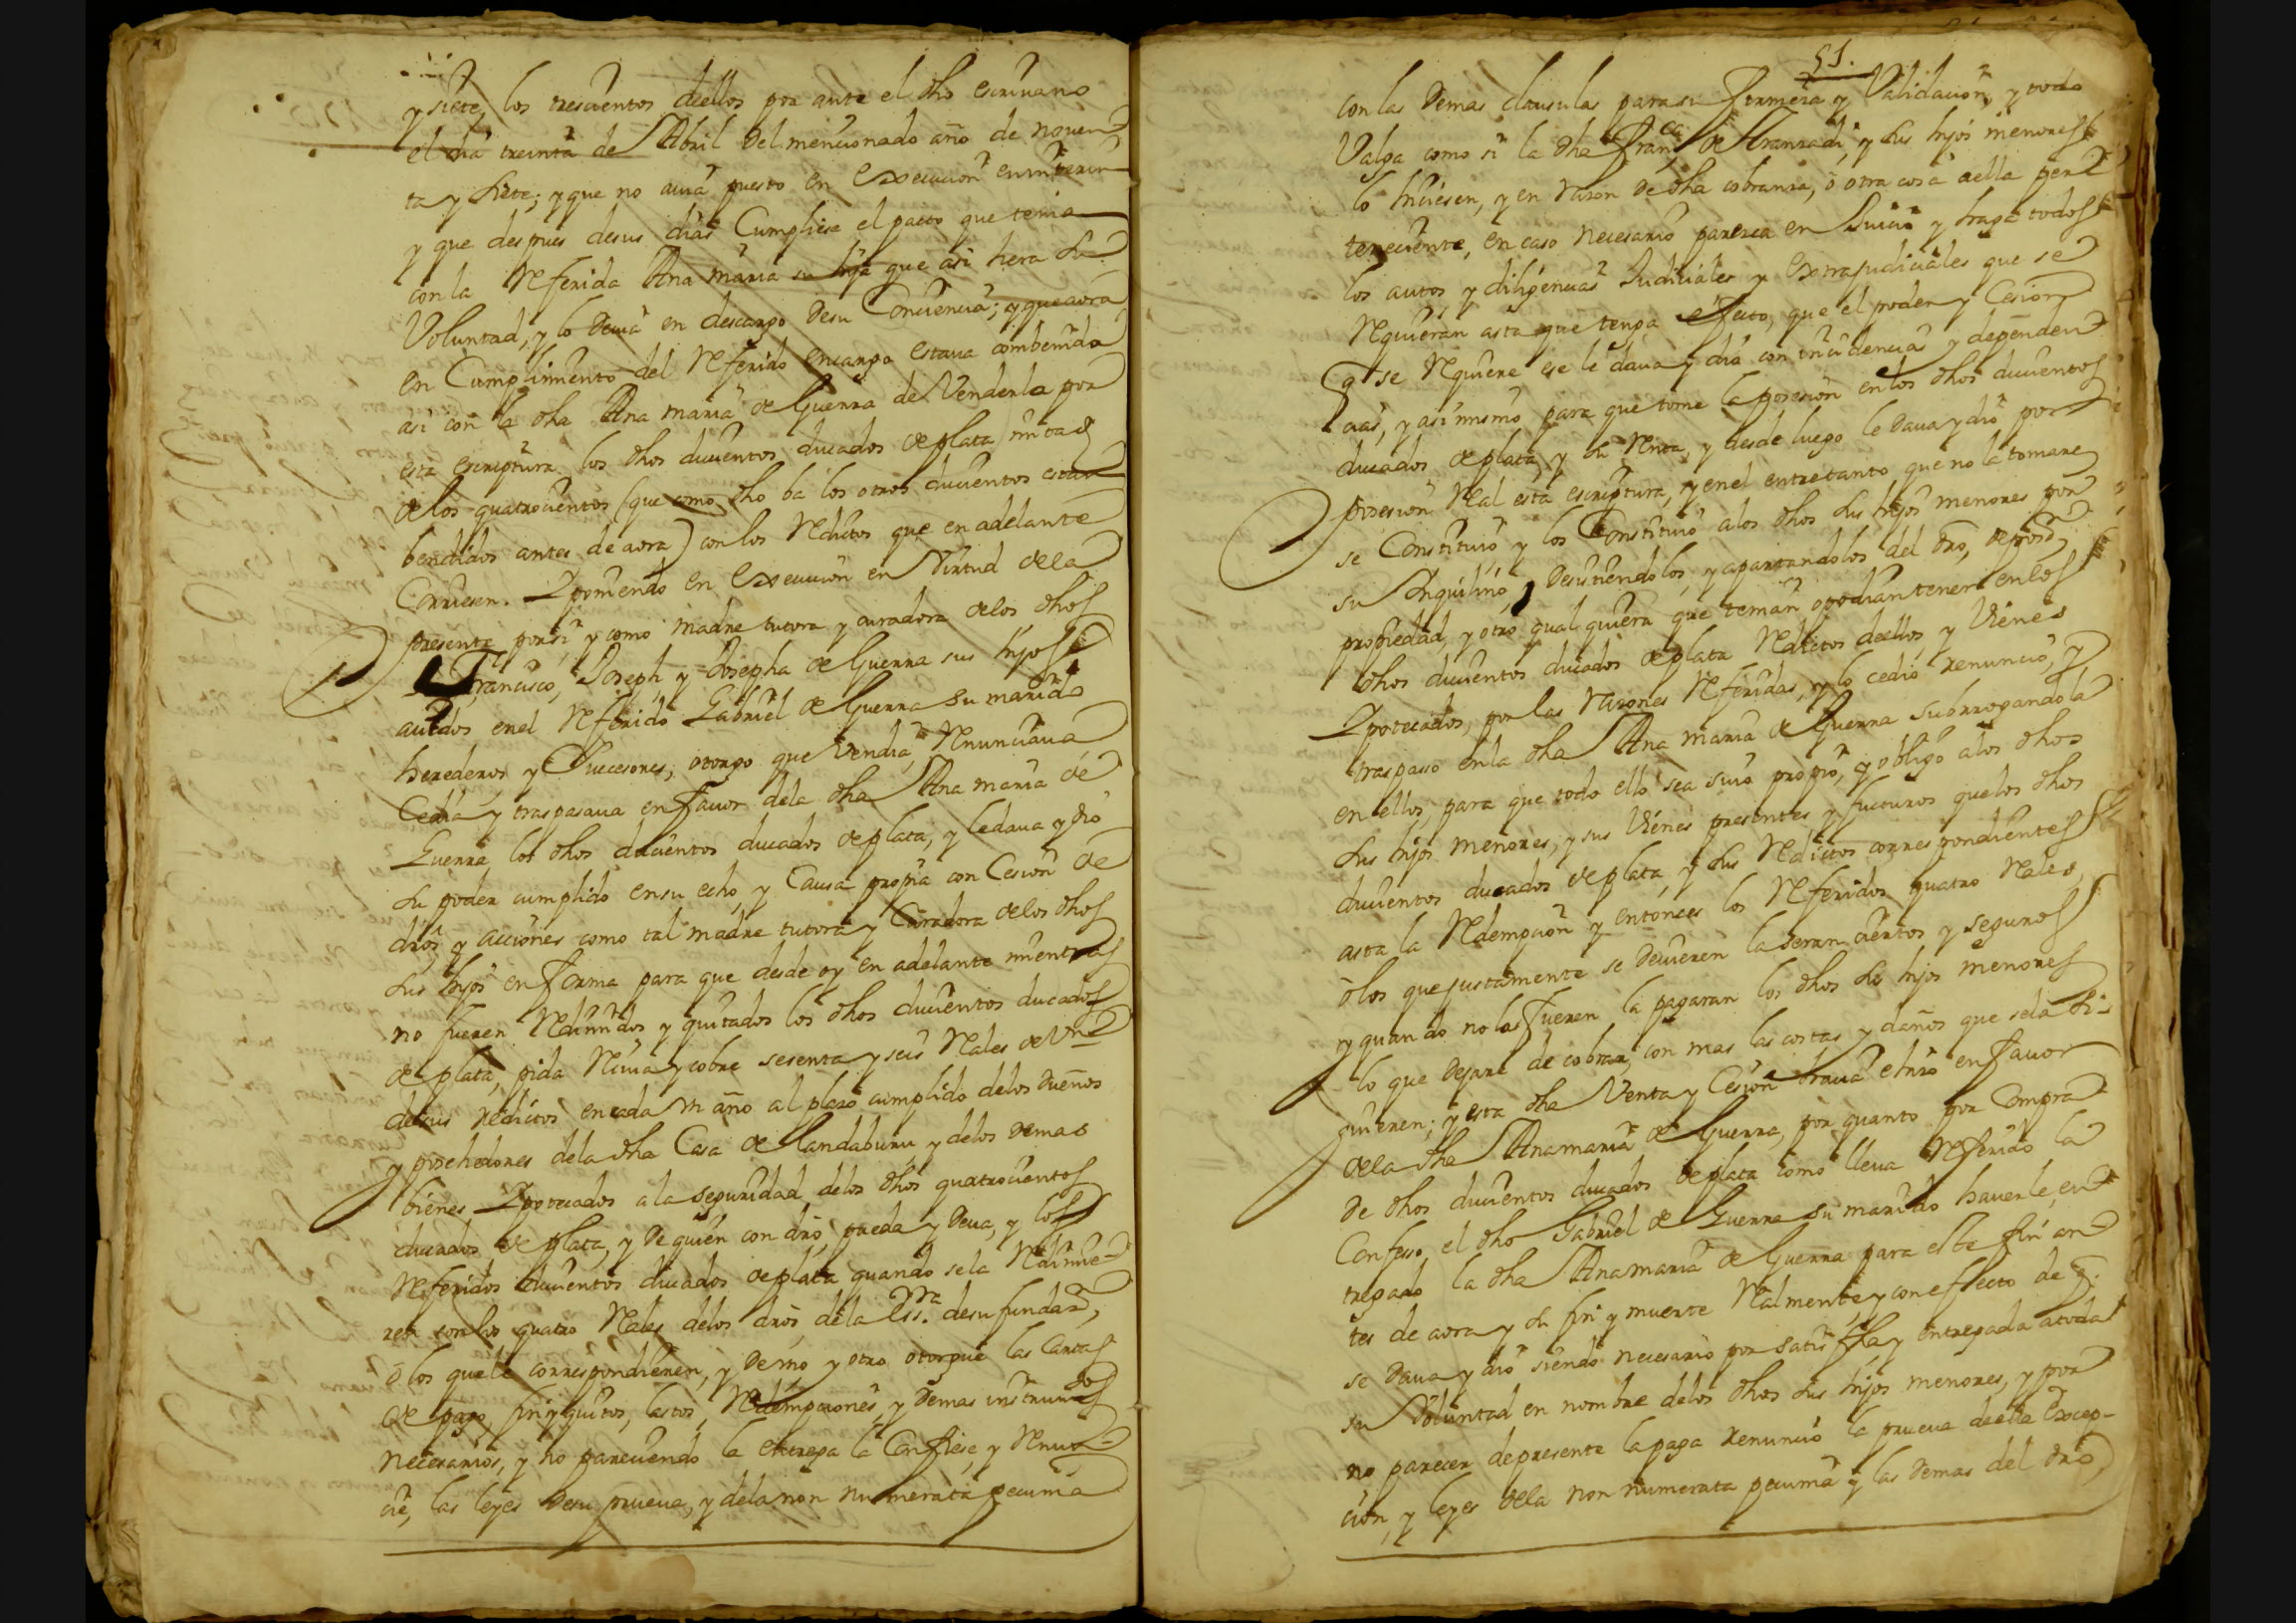 y siete, los trescientos dellos por ante el dho escriuano
el dia treinta de Abril del mencionado año de nouen
ta y siete; y que no auia puesto en execucion
y que despues de sus dias Cumpliese el pacto que tenia
con la Referida Ana maria su hija que asi hera su
Voluntad, y lo deuia en descargo de su Conciencia; y que aora
en Cumplimiento del Referido encargo estaua combenida
asi con la dha Ana maria de Guerra de Venderla por
esta escriptura los dhos ducientos ducados de plata mitad
de los quatrocientos (que como dho ba los otros ducientos estan
bendidos antes de aora) con los Reditos que en adelante
Corriesen. Y poniendo en execucion en Virtud de la
presente por si y como madre tutora y curadora de los dhos
Francisco, Joseph, y Josepha de Guerra sus hijos
auidos en el Referido Gabriel de Guerra su marido
herederos y Succesores, otorgo que Vendia, Renunciaua
Cedia y traspasaua en fauor de la dha Ana maria de
Guerra los dhos ducientos ducados de plata, y le daua y dio
su poder cumplido en su echo, y Causa propia con Cesion de
dros y acciones como tal madre tutora y Curadora de los dhos
sus hijos en forma para que desde oy en adelante mientras
no fueren Redimidos y quitados los dhos ducientos ducados
de plata, pida Reciua y cobre sesenta y seis Reales de Vn
de sus reditos en cada Vn año al plazo cumplido de los dueños
y posehedores de la dha Casa de Landaburu y de los demas
bienes Ypotecados a la seguridad de los dhos quatrocientos
ducados de plata, y de quien con dro, pueda y deua, y los
Referidos ducientos ducados de plata quando se la Redimie
ren con los quatro Reales de los dros, de la Essra. de su fundaz,
ò los que le correspondieren, y de Vno y otro otorgue las Cartas
de pago, finiquitos, lastos, Redempciones, y demas instrumtos
necesarios, y no pareciendo la entrega la Confiese, y Renun
cie, las leyes de su prueua, y de la non numerata pecunia
51.
con las demas clausulas para su firmeza y Validacion, y todo
Valga como si la dha Franca de Aranzadi, y sus hijos menores
lo hiciesen, y en razon de dha cobranza, ò otra cosa a ella per
teneciente, en caso necesario parezca en Juicio y haga todos
los autos, y diligencias Judiciales y extrajudiciales que se
Requieran asta que tenga efecto, que el poder y Cesion
q se Requiere ese le daua y dio con incidencias y dependen
cias, y asi mismo para que tome la posesion en los dhos ducientos
ducados de plata, y su Renta, y desde luego le daua y dio por
posesion Real esta escriptura, y en el entretanto que no la tomare
se Constituio, y los Constituio a los dhos sus hijos menores por
su Inquilino, desistiendolos, y apartandolos del dro, de poson,
propiedad, y otro qualquiera que tenian o podian tener en los
dhos ducientos ducados de plata Reditos dellos, y Vienes
Ypotecados, por las Razones Referidas, y lo cedio renuncio, y
traspasso en la dha Ana maria de Guerra subrrogandola
en ellos, para que todo ello sea suio propio, y obligo a los dhos
sus hijos menores, y sus Vienes presentes y fucturos que los dhos
ducientos ducados de plata, y sus Reditos correspondientes
asta la Redempcion y entonces los Referidos quatro Reales,
ò los que justamente se deuieren la seran ciertos y seguros
y quando no las fueren la pagaran los dhos sus hijos menores
lo que dejare de cobrar, con mas las costas y daños que se la si-
guieren; y esta dha Venta y Cesion hauia echo en fauor
de la dha Ana maria de Guerra, por quanto por Compra
de dhos ducientos ducados de plata como lleua Referido la
Confeso, el dho Gabriel de Guerra su marido hauerle en
tregado la dha Ana maria de Guerra para este fin an
tes de aora y su fin y muerte Realmente y con effecto de q.
se daua y dio siendo necesario por satisfha y entregada a toda
su Voluntad en nombre de los dhos sus hijos menores, y por
no parecer de presente la paga renuncio la prueua de ella excep-
cion, y leyes de la non numerata pecunia y las demas del dro,